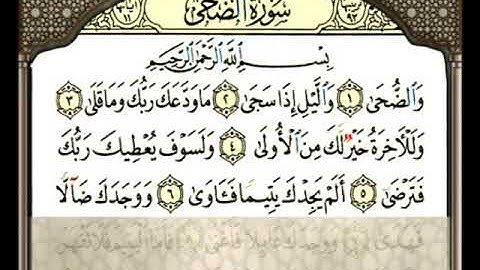 سُورَةُ الضُّحَىٰ
بِسْمِ اللَّهِ الرَّحْمَٰنِ الرَّحِيمِ
وَالضُّحَىٰ ۝١ وَاللَّيْلِ إِذَا سَجَىٰ ۝٢ مَا وَدَّعَكَ رَبُّكَ وَمَا قَلَىٰ ۝٣
وَلَلْآخِرَةُ خَيْرٌ لَّكَ مِنَ الْأُولَىٰ ۝٤ وَلَسَوْفَ يُعْطِيكَ رَبُّكَ
فَتَرْضَىٰ ۝٥ أَلَمْ يَجِدْكَ يَتِيمًا فَآوَىٰ ۝٦ وَوَجَدَكَ ضَالًّا
فَهَدَىٰ ۝٧ وَوَجَدَكَ عَائِلًا فَأَغْنَىٰ ۝٨ فَأَمَّا الْيَتِيمَ فَلَا تَقْهَرْ